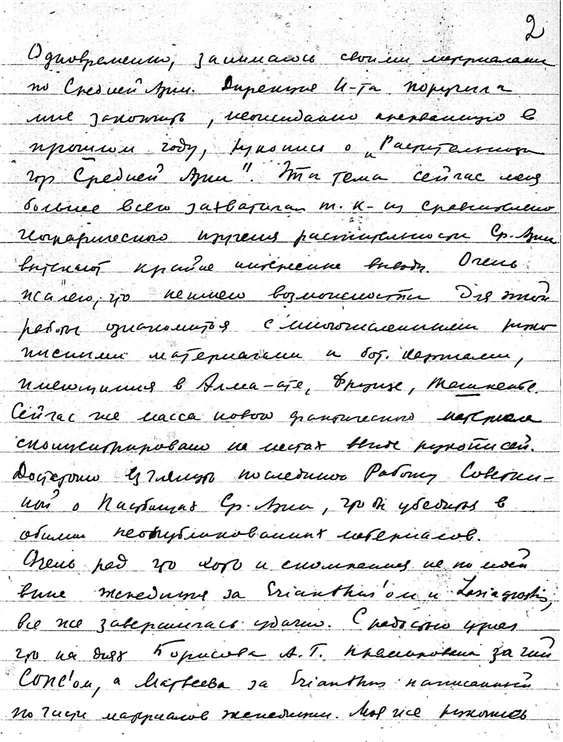 2
Одновременно, занимаюсь своими материалами
по Средней Азии. Дирекция И-та поручила
мне закончить, неожиданно прерванную в
прошлом году, рукопись о „Растительности
гор Средней Азии". Эта тема сейчас меня
больше всего захватила т. к. из сравнительно
географического изучения растительности Ср. Азии
вытекают крайне интересные выводы. Очень
жалею, что не имею возможности для этой
работы ознакомиться с многочисленными руко
писными материалами и бот. картами,
имеющимися в Алма-ате, Фрунзе, Ташкенте.
Сейчас же масса нового фактического материала
сконцентрировано на местах в виде рукописей.
Достаточно взглянуть последнюю работу Советки-
ной о Пастбищах Ср. Азии, чтобы убедиться в
обилии неопубликованных материалов.
Очень рад что хотя и скомканная не по моей
вине экспедиция за Erianthus'ом и Lasiagrostis,
все же завершилась удачно. С радостью узнал
что на днях Борисова А. Г. премирована за
, а Матвеева за Erianthus написанный
по части материалов экспедиции. Моя же рукопись